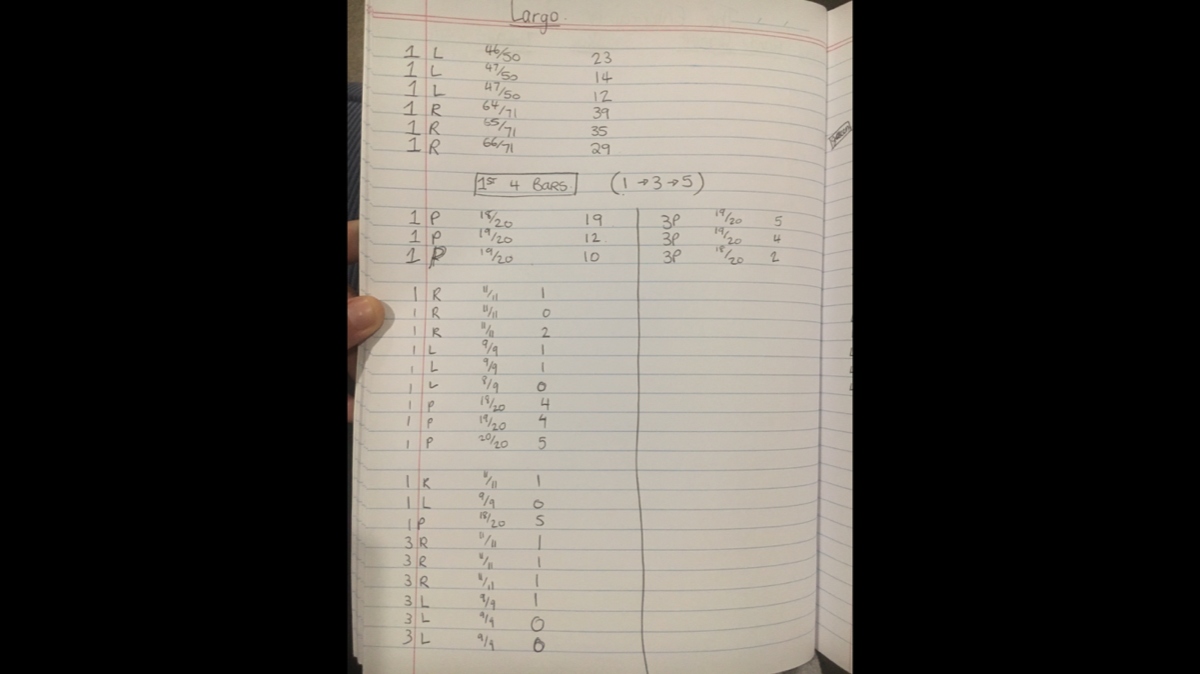 Largo.
1 L 46/50 23
1 L 47/50 14
1 L 47/50 12
1 R 64/71 39
1 R 65/71 35
1 R 66/71 29
1st 4 BARS. (1 → 3 → 5)
1 P 18/20 19 3P 19/20 5
1 P 19/20 12 3P 19/20 4
1 P 19/20 10 3P 18/20 2
1 R 11/11 1
1 R 11/11 0
1 R 11/11 2
1 L 9/9 1
1 L 9/9 1
1 L 8/9 0
1 P 18/20 4
1 P 19/20 4
1 P 20/20 5
1 R 11/11 1
1 L 9/9 0
1 P 18/20 5
3 R 11/11 1
3 R 11/11 1
3 R 11/11 1
3 L 9/9 1
3 L 9/9 0
3 L 9/9 0